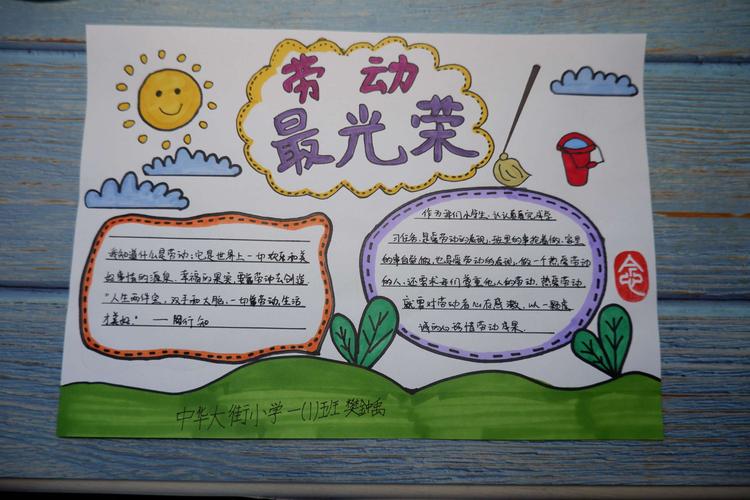 劳动
最光荣
我知道什么是劳动:它是世界上一切欢乐和美
好事情的源泉、幸福的果实,要靠劳动去创造
“人生两件宝,双手和大脑,一切靠劳动,生活
才美好。” ——陶行知
作为我们小学生,认认真真完成学
习任务,是爱劳动的表现,班里的事抢着做,家里
的事自觉做,也是爱劳动的表现,做一个热爱劳动
的人,还需我们尊重他人的劳动,热爱劳动,
就要对劳动者心存感激,以一颗虔
诚的心珍惜劳动成果。
中华大街小学一(1)班 樊钟禹